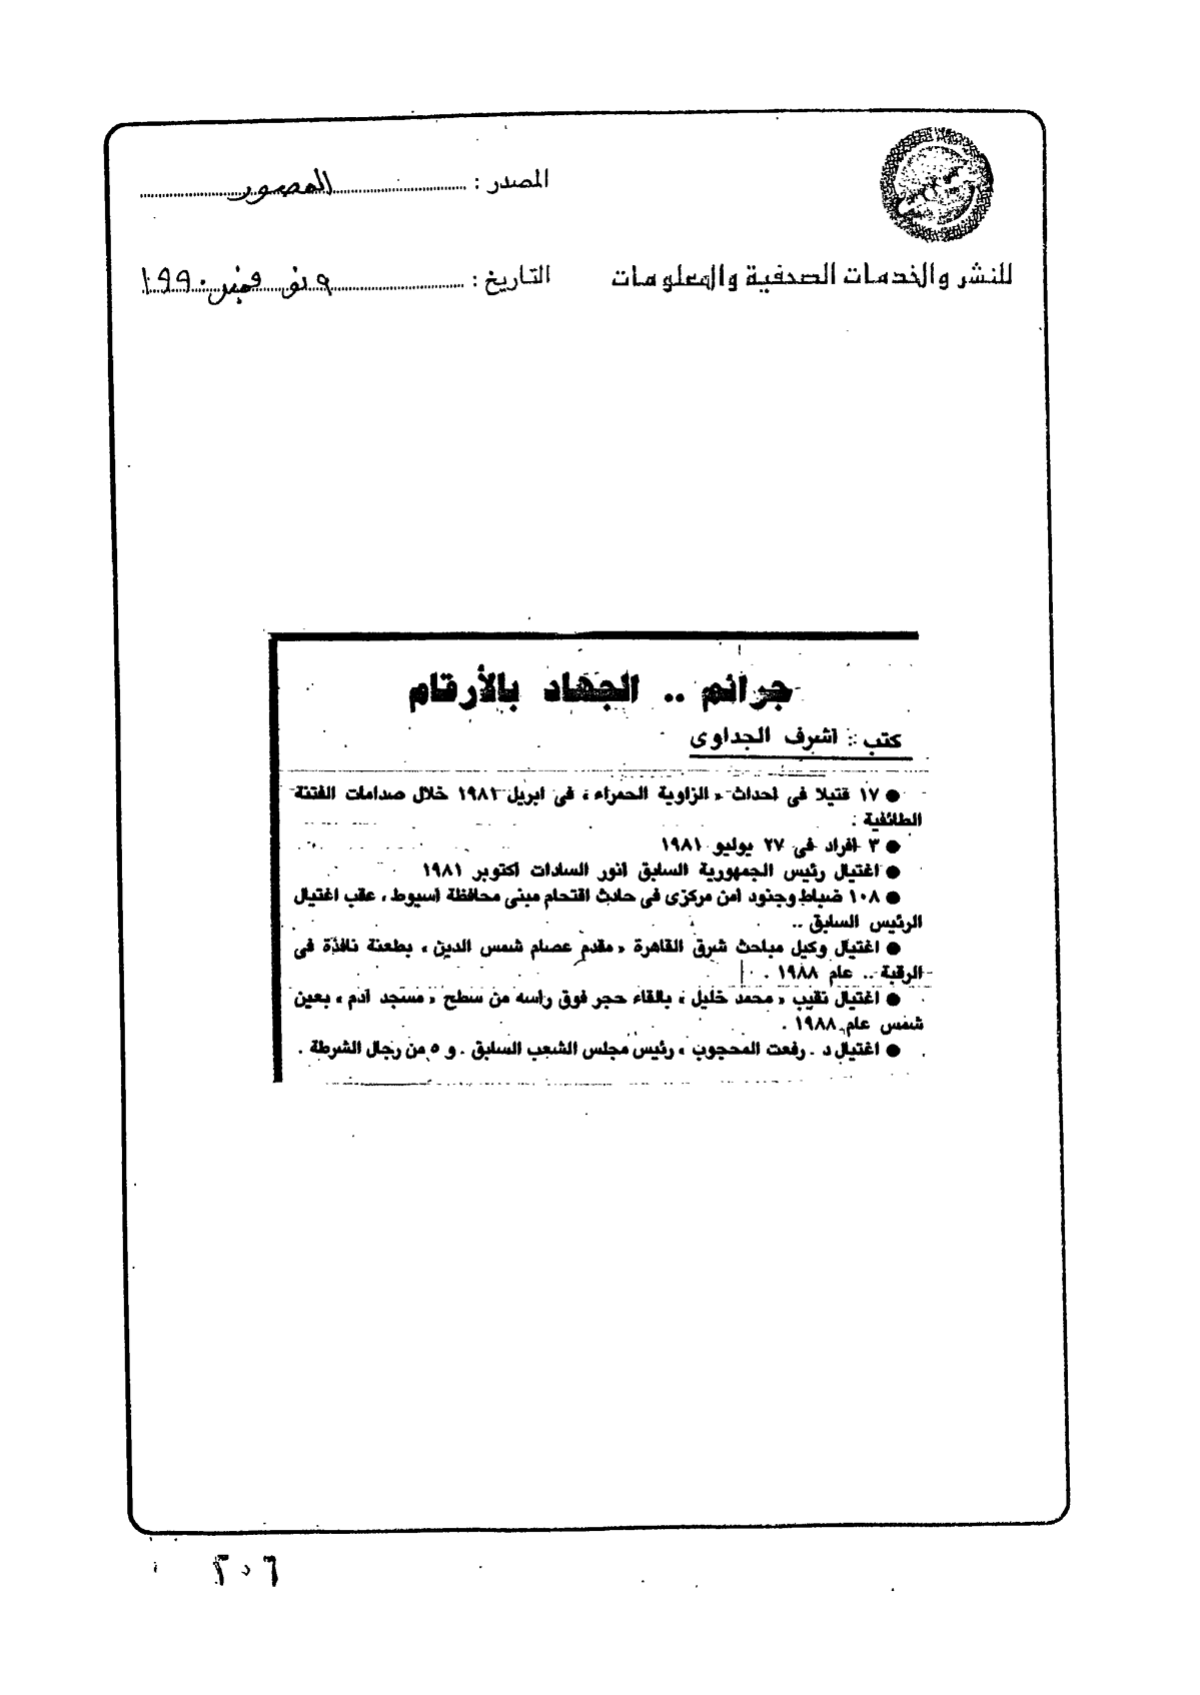 المصدر : المصور
للنشر والخدمات الصحفية والمعلومات
التاريخ : ٩ نوفمبر ١٩٩٠
جرائم .. الجهاد بالأرقام
كتب : اشرف الجداوى
● ١٧ قتيلا فى احداث « الزاوية الحمراء » فى ابريل ١٩٨١ خلال صدامات الفتنة
الطائفية .
● ٣ افراد فى ٢٧ يوليو ١٩٨١
● اغتيال رئيس الجمهورية السابق انور السادات اكتوبر ١٩٨١
● ١٠٨ ضباط وجنود امن مركزى فى حادث اقتحام مبنى محافظة اسيوط ، عقب اغتيال
الرئيس السابق ..
● اغتيال وكيل مباحث شرق القاهرة « مقدم عصام شمس الدين » بطعنة نافذة فى
الرقبة .. عام ١٩٨٨ .
● اغتيال نقيب « محمد خليل » بالقاء حجر فوق راسه من سطح « مسجد آدم » بعين
شمس عام ١٩٨٨ .
● اغتيال د . رفعت المحجوب ، رئيس مجلس الشعب السابق . و ٥ من رجال الشرطة .
٢٠٦